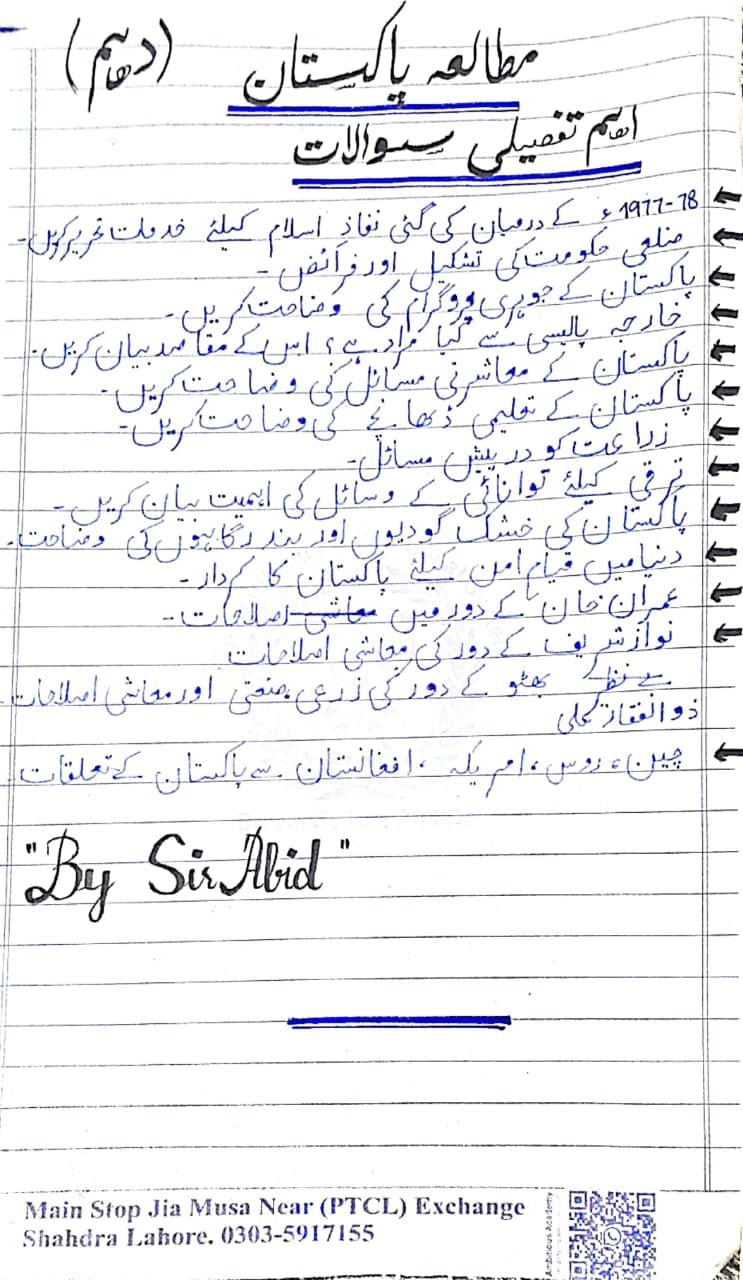 مطالعہ پاکستان (دہم)
اہم تفصیلی سوالات
1977-78ء کے درمیان کی گئی نفاذِ اسلام کیلئے خدمات تحریر کریں۔
ضلعی حکومت کی تشکیل اور فرائض۔
پاکستان کے جوہری پروگرام کی وضاحت کریں۔
خارجہ پالیسی سے کیا مراد ہے؟ اس کے مقاصد بیان کریں۔
پاکستان کے معاشرتی مسائل کی وضاحت کریں۔
پاکستان کے تعلیمی ڈھانچے کی وضاحت کریں۔
زراعت کو درپیش مسائل۔
ترقی کیلئے توانائی کے وسائل کی اہمیت بیان کریں۔
پاکستان کی خشک گودیوں اور بندرگاہوں کی وضاحت۔
دنیا میں قیامِ امن کیلئے پاکستان کا کردار۔
عمران خان کے دور میں معاشی اصلاحات۔
نواز شریف کے دور کی معاشی اصلاحات
بے نظیر بھٹو کے دور کی زرعی، صنعتی اور معاشی اصلاحات
ذوالفقار علی
چین، روس، امریکہ، افغانستان سے پاکستان کے تعلقات۔
"By Sir Abid"
Main Stop Jia Musa Near (PTCL) Exchange
Shahdra Lahore. 0303-5917155
Ambitious Academy